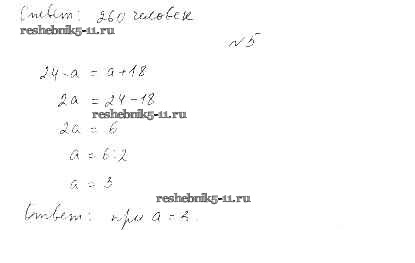 Ответ: 260 человек
reshebnik5-11.ru
№5
24-a = a+18
2a = 24-18
reshebnik5-11.ru
2a = 6
a = 6:2
a = 3
reshebnik5-11.ru
Ответ: при a = 3.